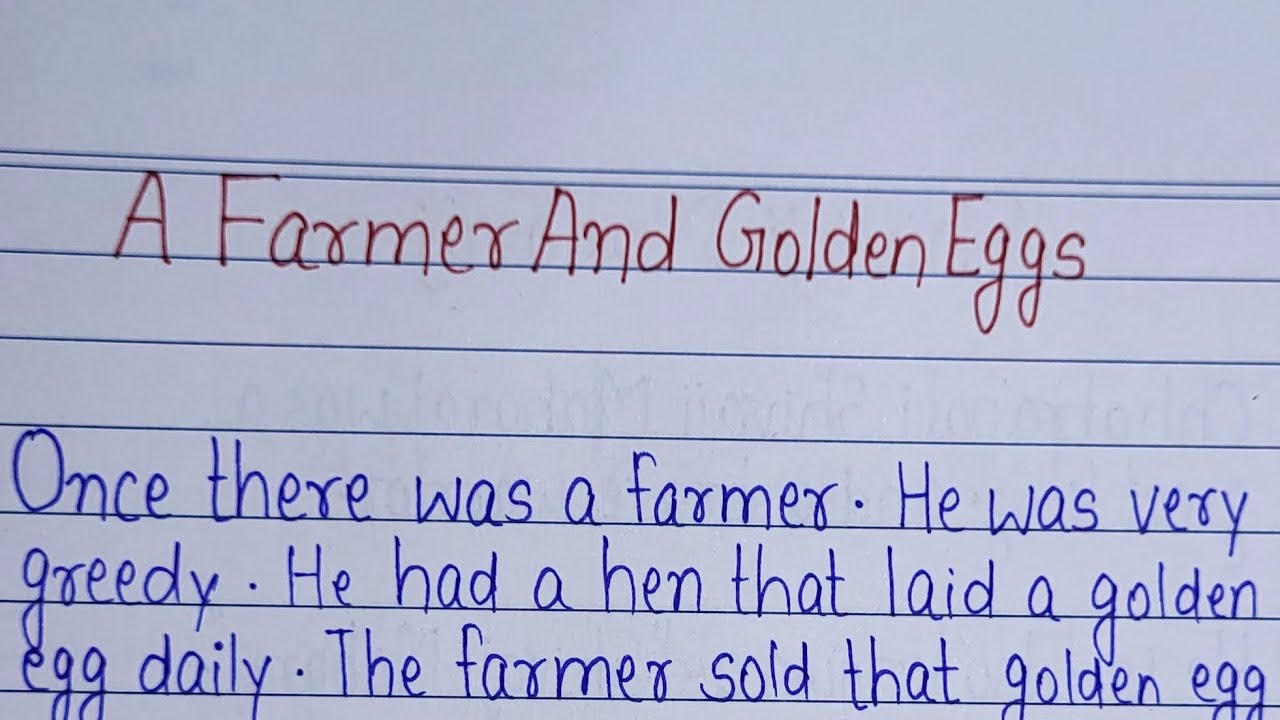 A Farmer And Golden Eggs
Once there was a farmer. He was very
greedy. He had a hen that laid a golden
egg daily. The farmer sold that golden egg